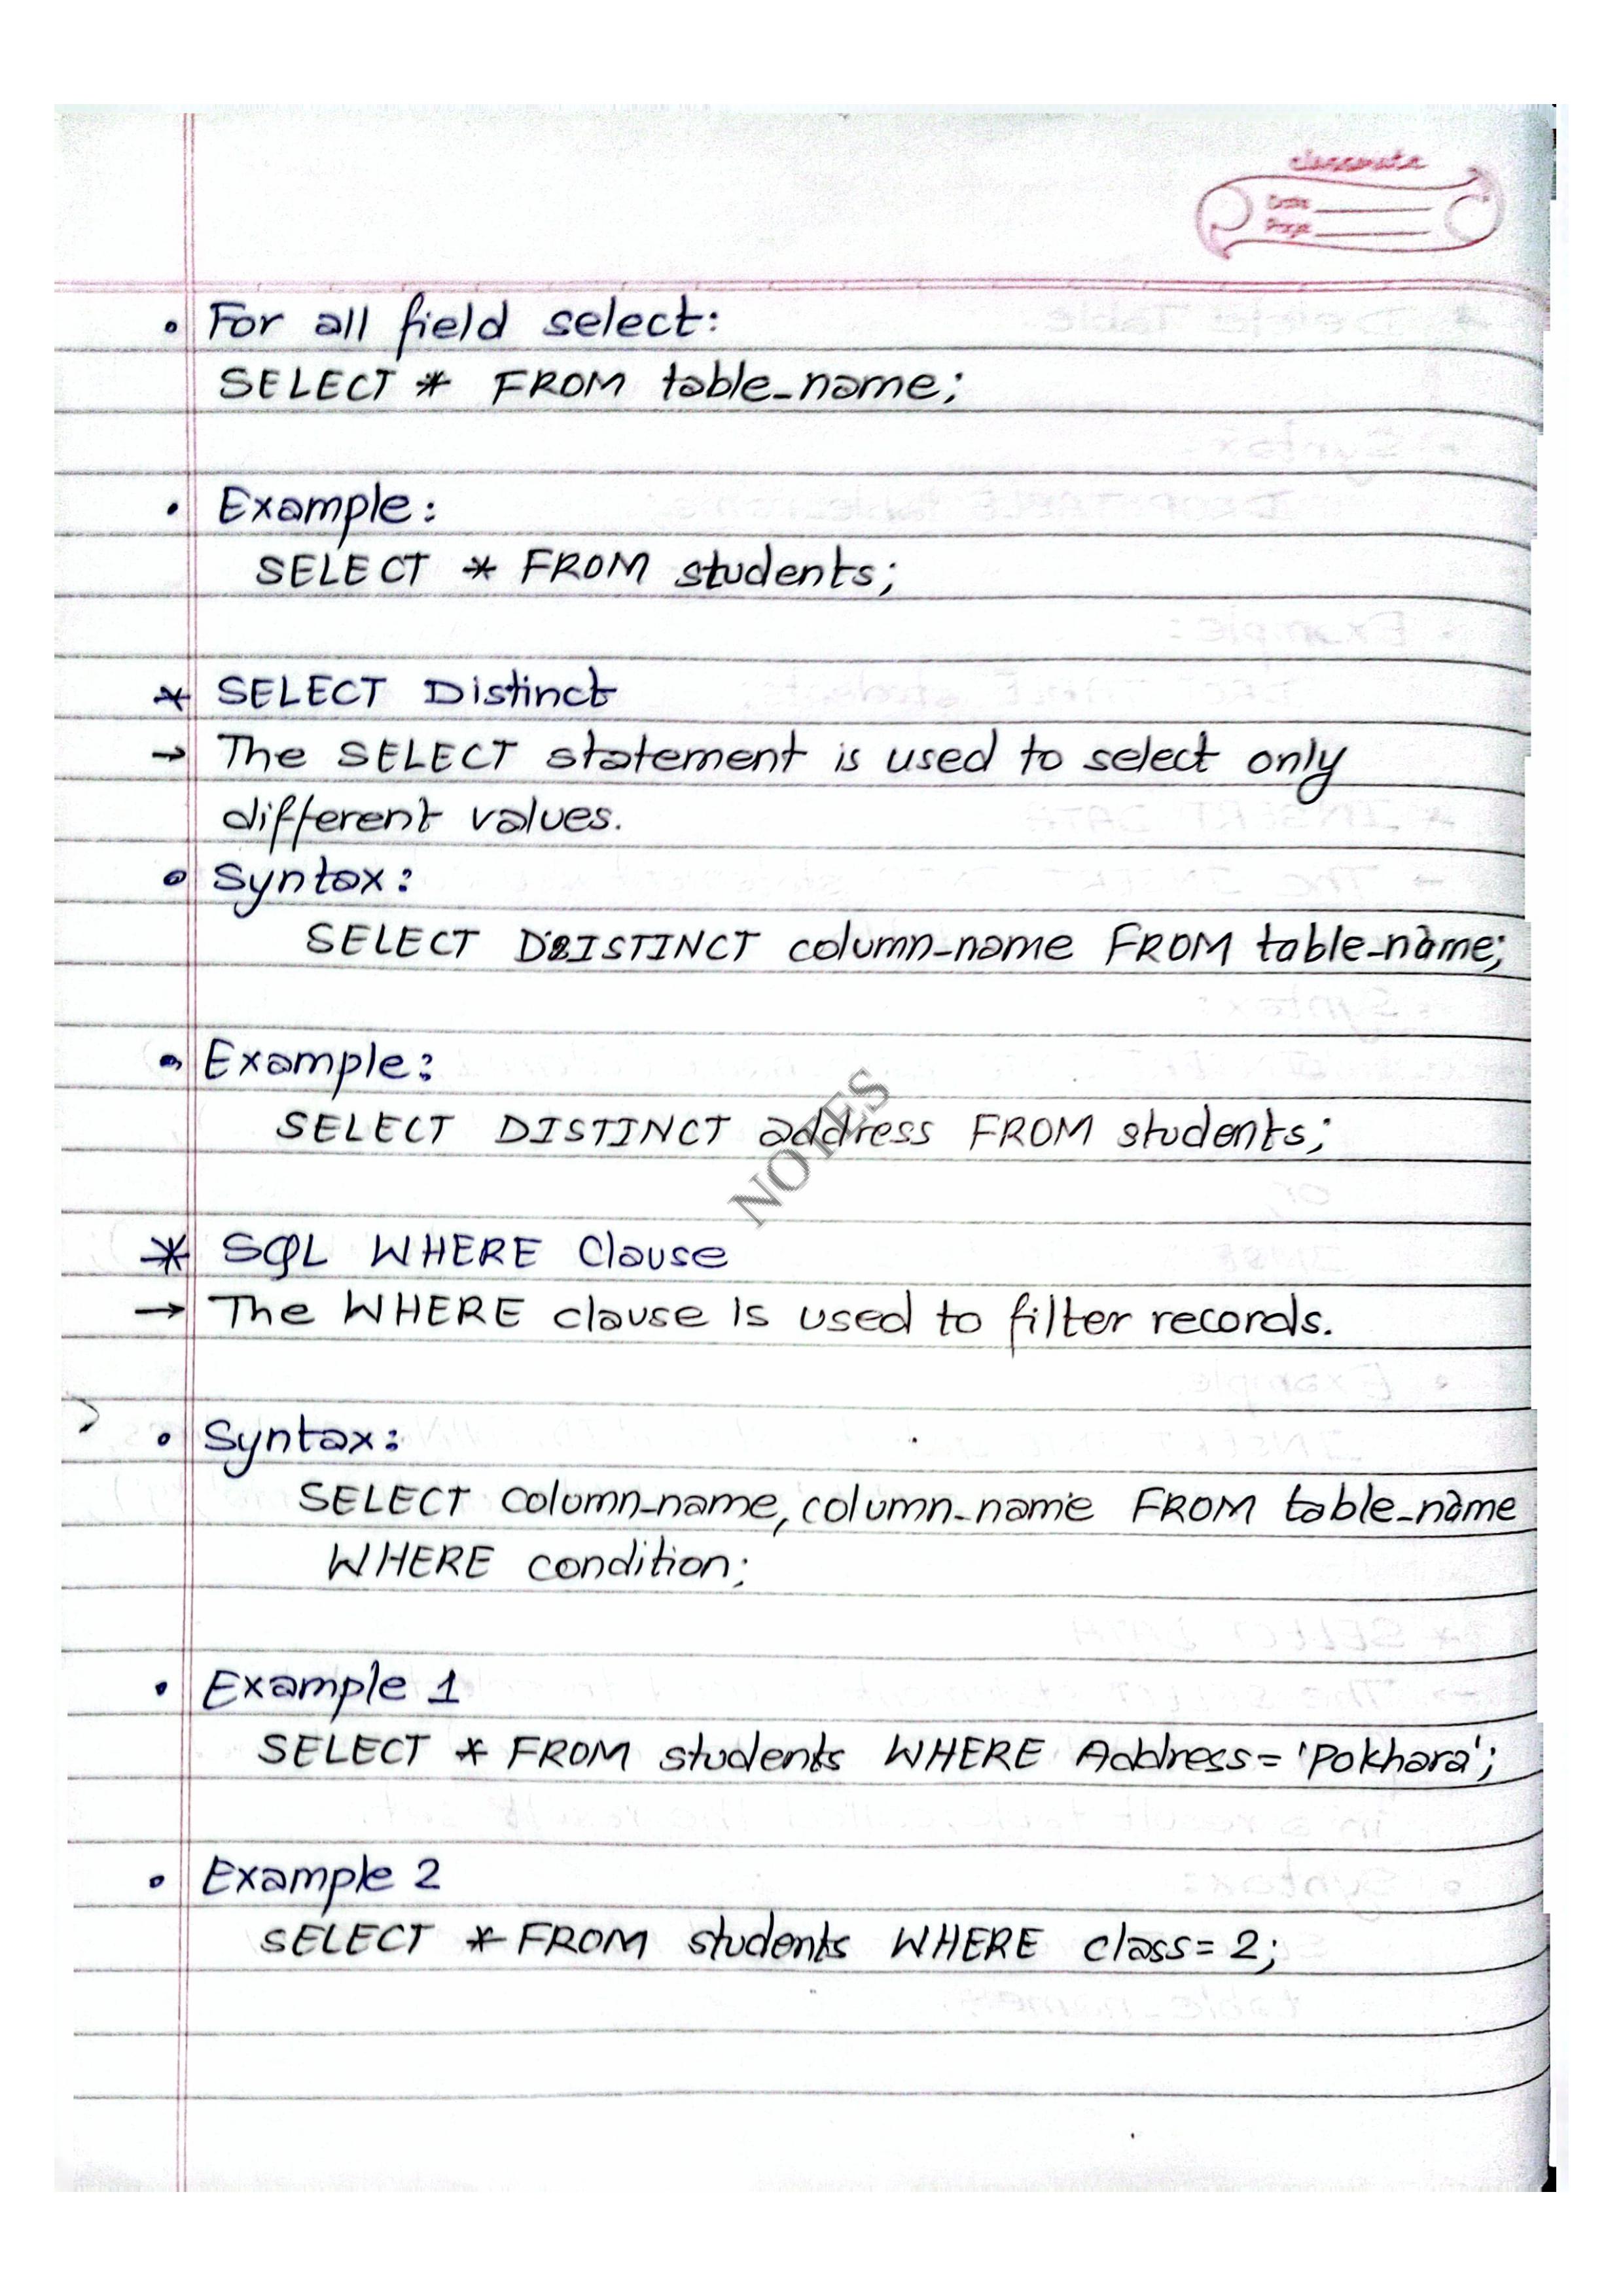 classmate
Date
Page
• For all field select:
SELECT * FROM table_name;
• Example:
SELECT * FROM students;
* SELECT Distinct
→ The SELECT statement is used to select only
different values.
• Syntax:
SELECT DISTINCT column_name FROM table_name;
• Example:
SELECT DISTINCT address FROM students;
NOTES
* SQL WHERE Clause
→ The WHERE clause is used to filter records.
• Syntax:
SELECT column_name, column_name FROM table_name
WHERE condition;
• Example 1
SELECT * FROM students WHERE Address = 'Pokhara';
• Example 2
SELECT * FROM students WHERE class = 2;